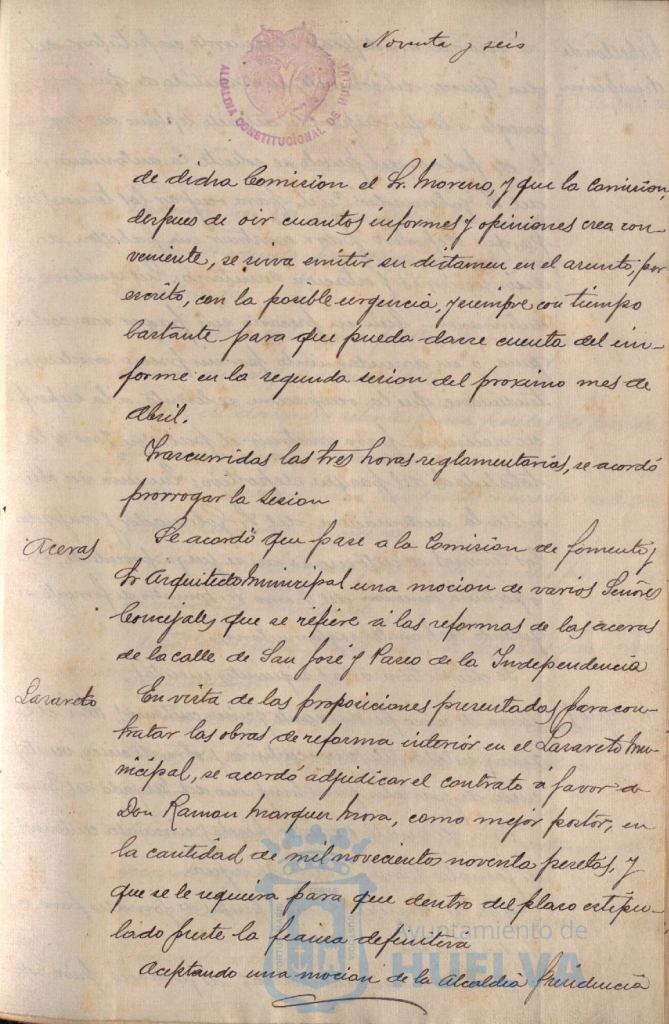 Noventa y seis
ALCALDIA CONSTITUCIONAL DE HUELVA
de dicha Comision el Sr. Moreno, y que la Comision,
despues de oir cuantos informes y opiniones crea con-
veniente, se sirva emitir su dictamen en el asunto, por
escrito, con la posible urgencia, y siempre con tiempo
bastante para que pueda darse cuenta del in-
forme en la segunda sesion del proximo mes de
Abril.
Trascurridas las tres horas reglamentarias, se acordó
prorrogar la sesion
Aceras
Se acordó que pase a la Comision de fomento y
Sr Arquitecto Municipal una mocion de varios Señores
Concejales que se refiere á las reformas de las aceras
de la calle de San José y Paseo de la Independencia
Lazareto
En vista de las proposiciones presentadas para con-
tratar las obras de reforma interior en el Lazareto Mu-
nicipal, se acordó adjudicar el contrato á favor de
Don Ramon Marquez Mora, como mejor postor, en
la cantidad de mil novecientos noventa pesetas, y
que se le requiera para que dentro del plazo estipu-
lado preste la fianza definitiva
Aceptando una mocion de la Alcaldia Presidencia
Ayuntamiento de
HUELVA